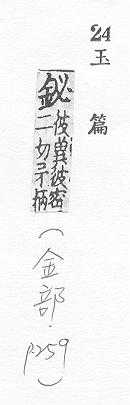 24
玉篇
鉍彼冀彼密二切矛柄
(金部.P259)